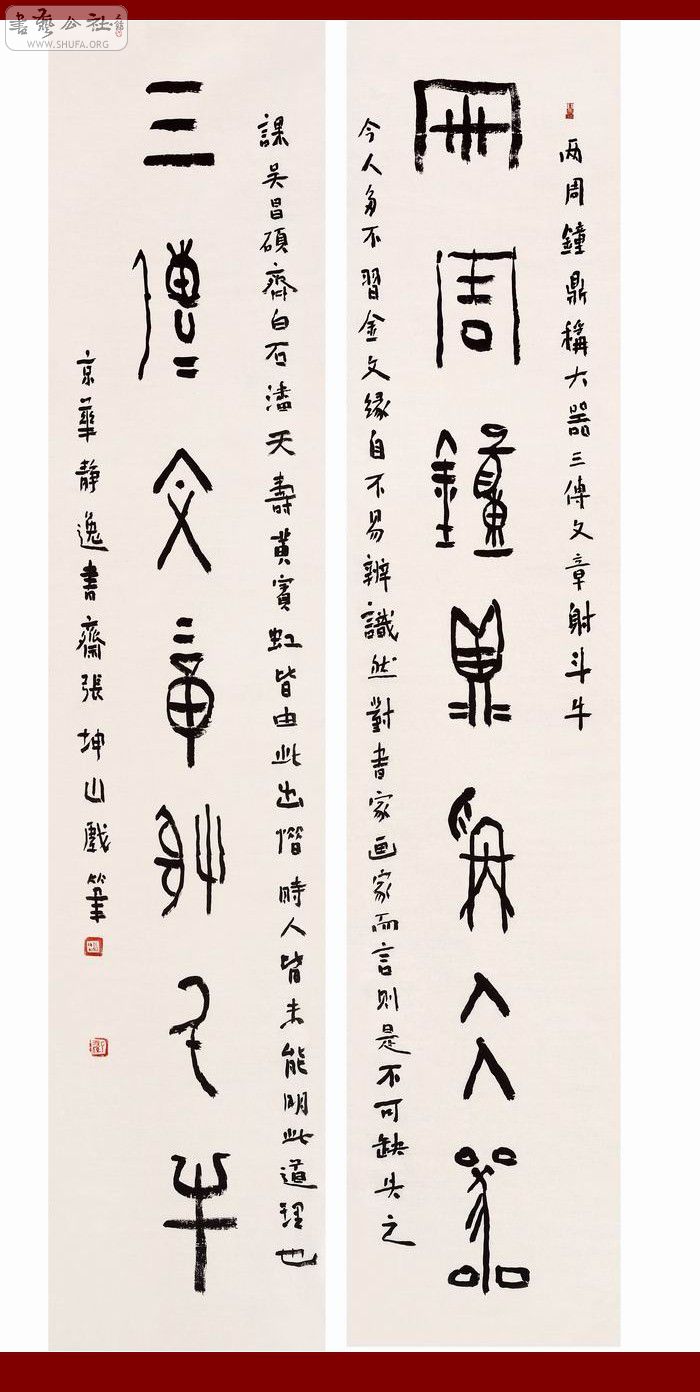 書藝公社
WWW.SHUFA.ORG
兩周鐘鼎稱大器三傳文章射斗牛
兩周鐘鼎稱大器
今人多不習金文缘自不易辨識然對書家画家而言則是不可缺失之
課吴昌碩齊白石潘天壽黄賓虹皆由此出惜時人皆未能明此道理也
三傳文章射斗牛
京華静逸書齋張坤山戲筆